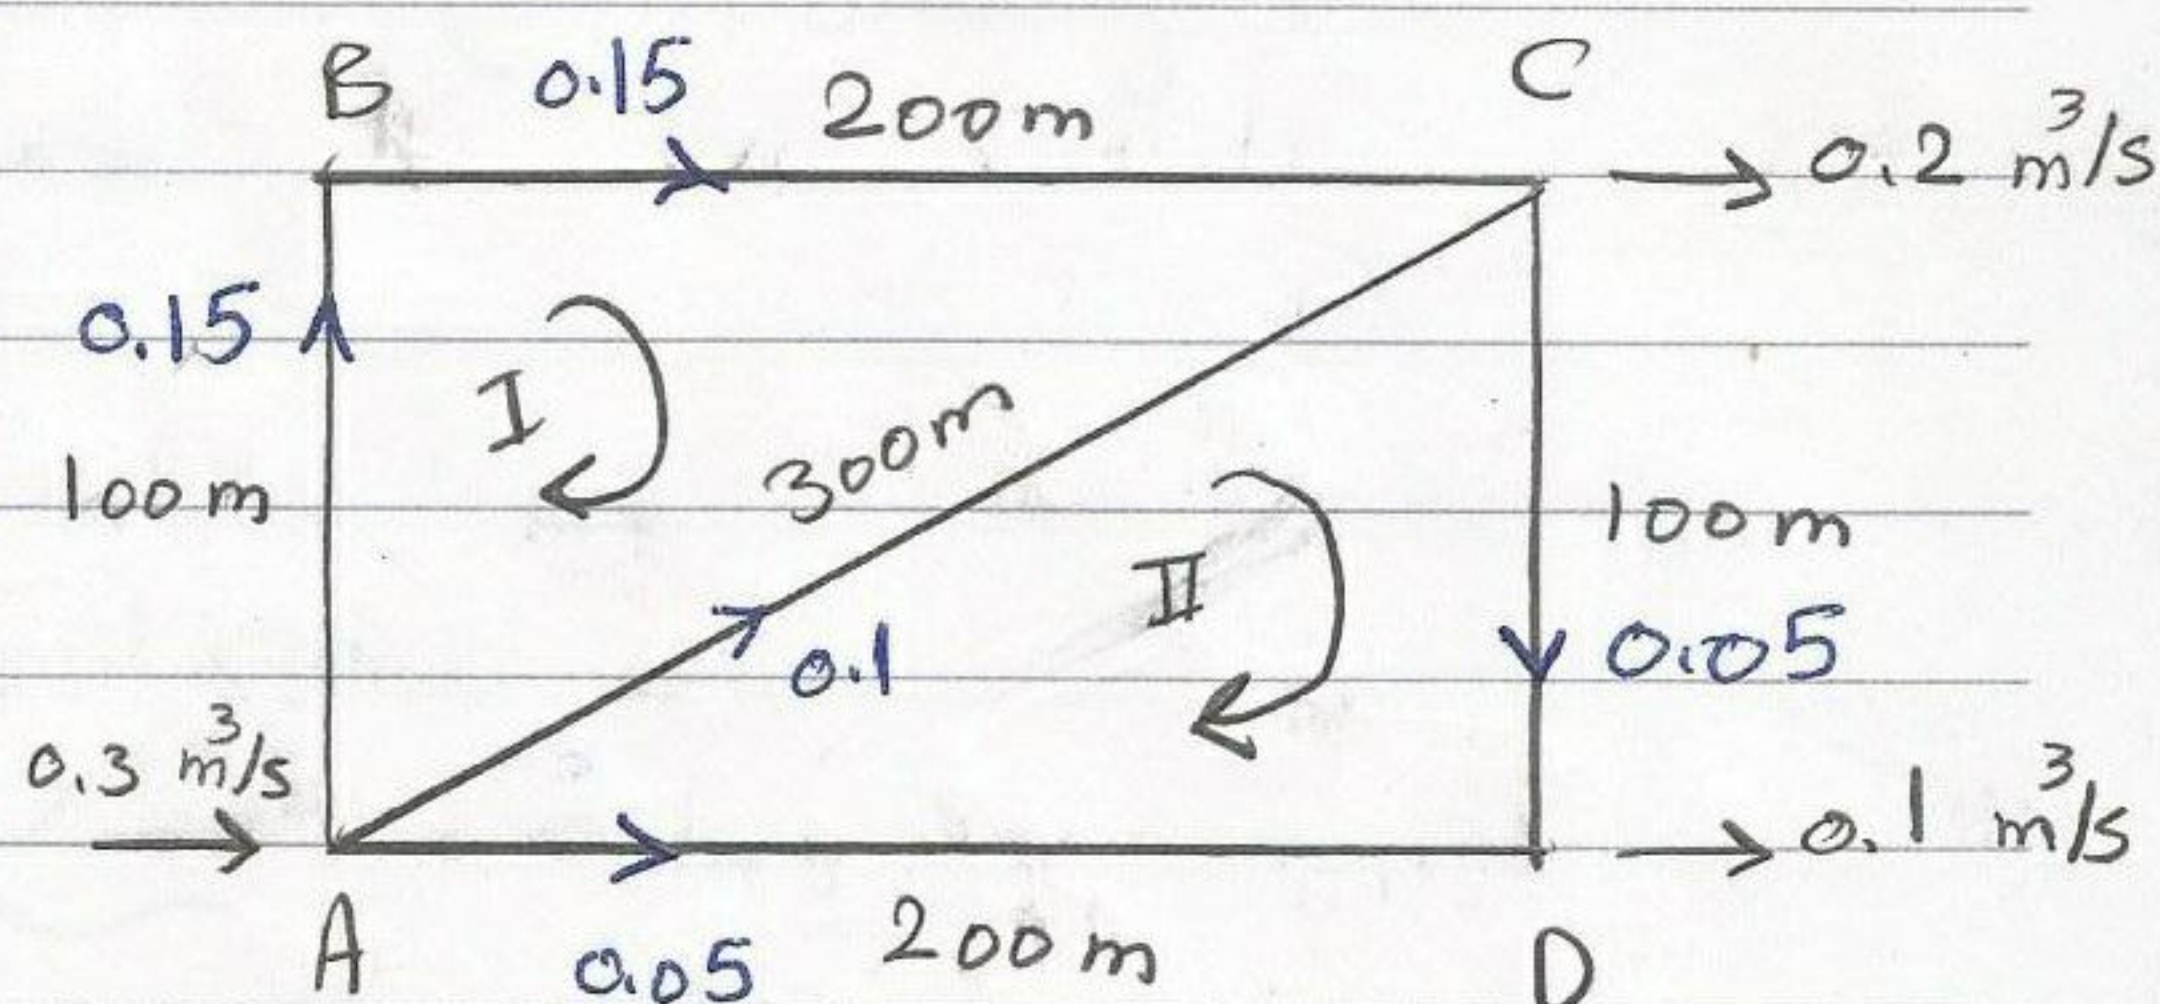 B 0.15 200m C
0.2 m³/s
0.15
I
300m
100m
100m
II
0.05
0.1
0.3 m³/s
0.1 m³/s
A 0.05 200m D